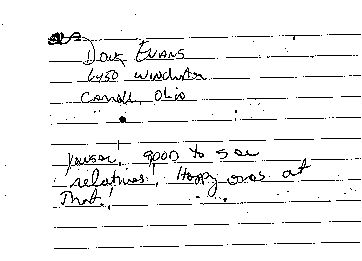 Dock Evans
6450 Winchester
Carroll, Ohio
good to see
relatives! Happy ones at
That!